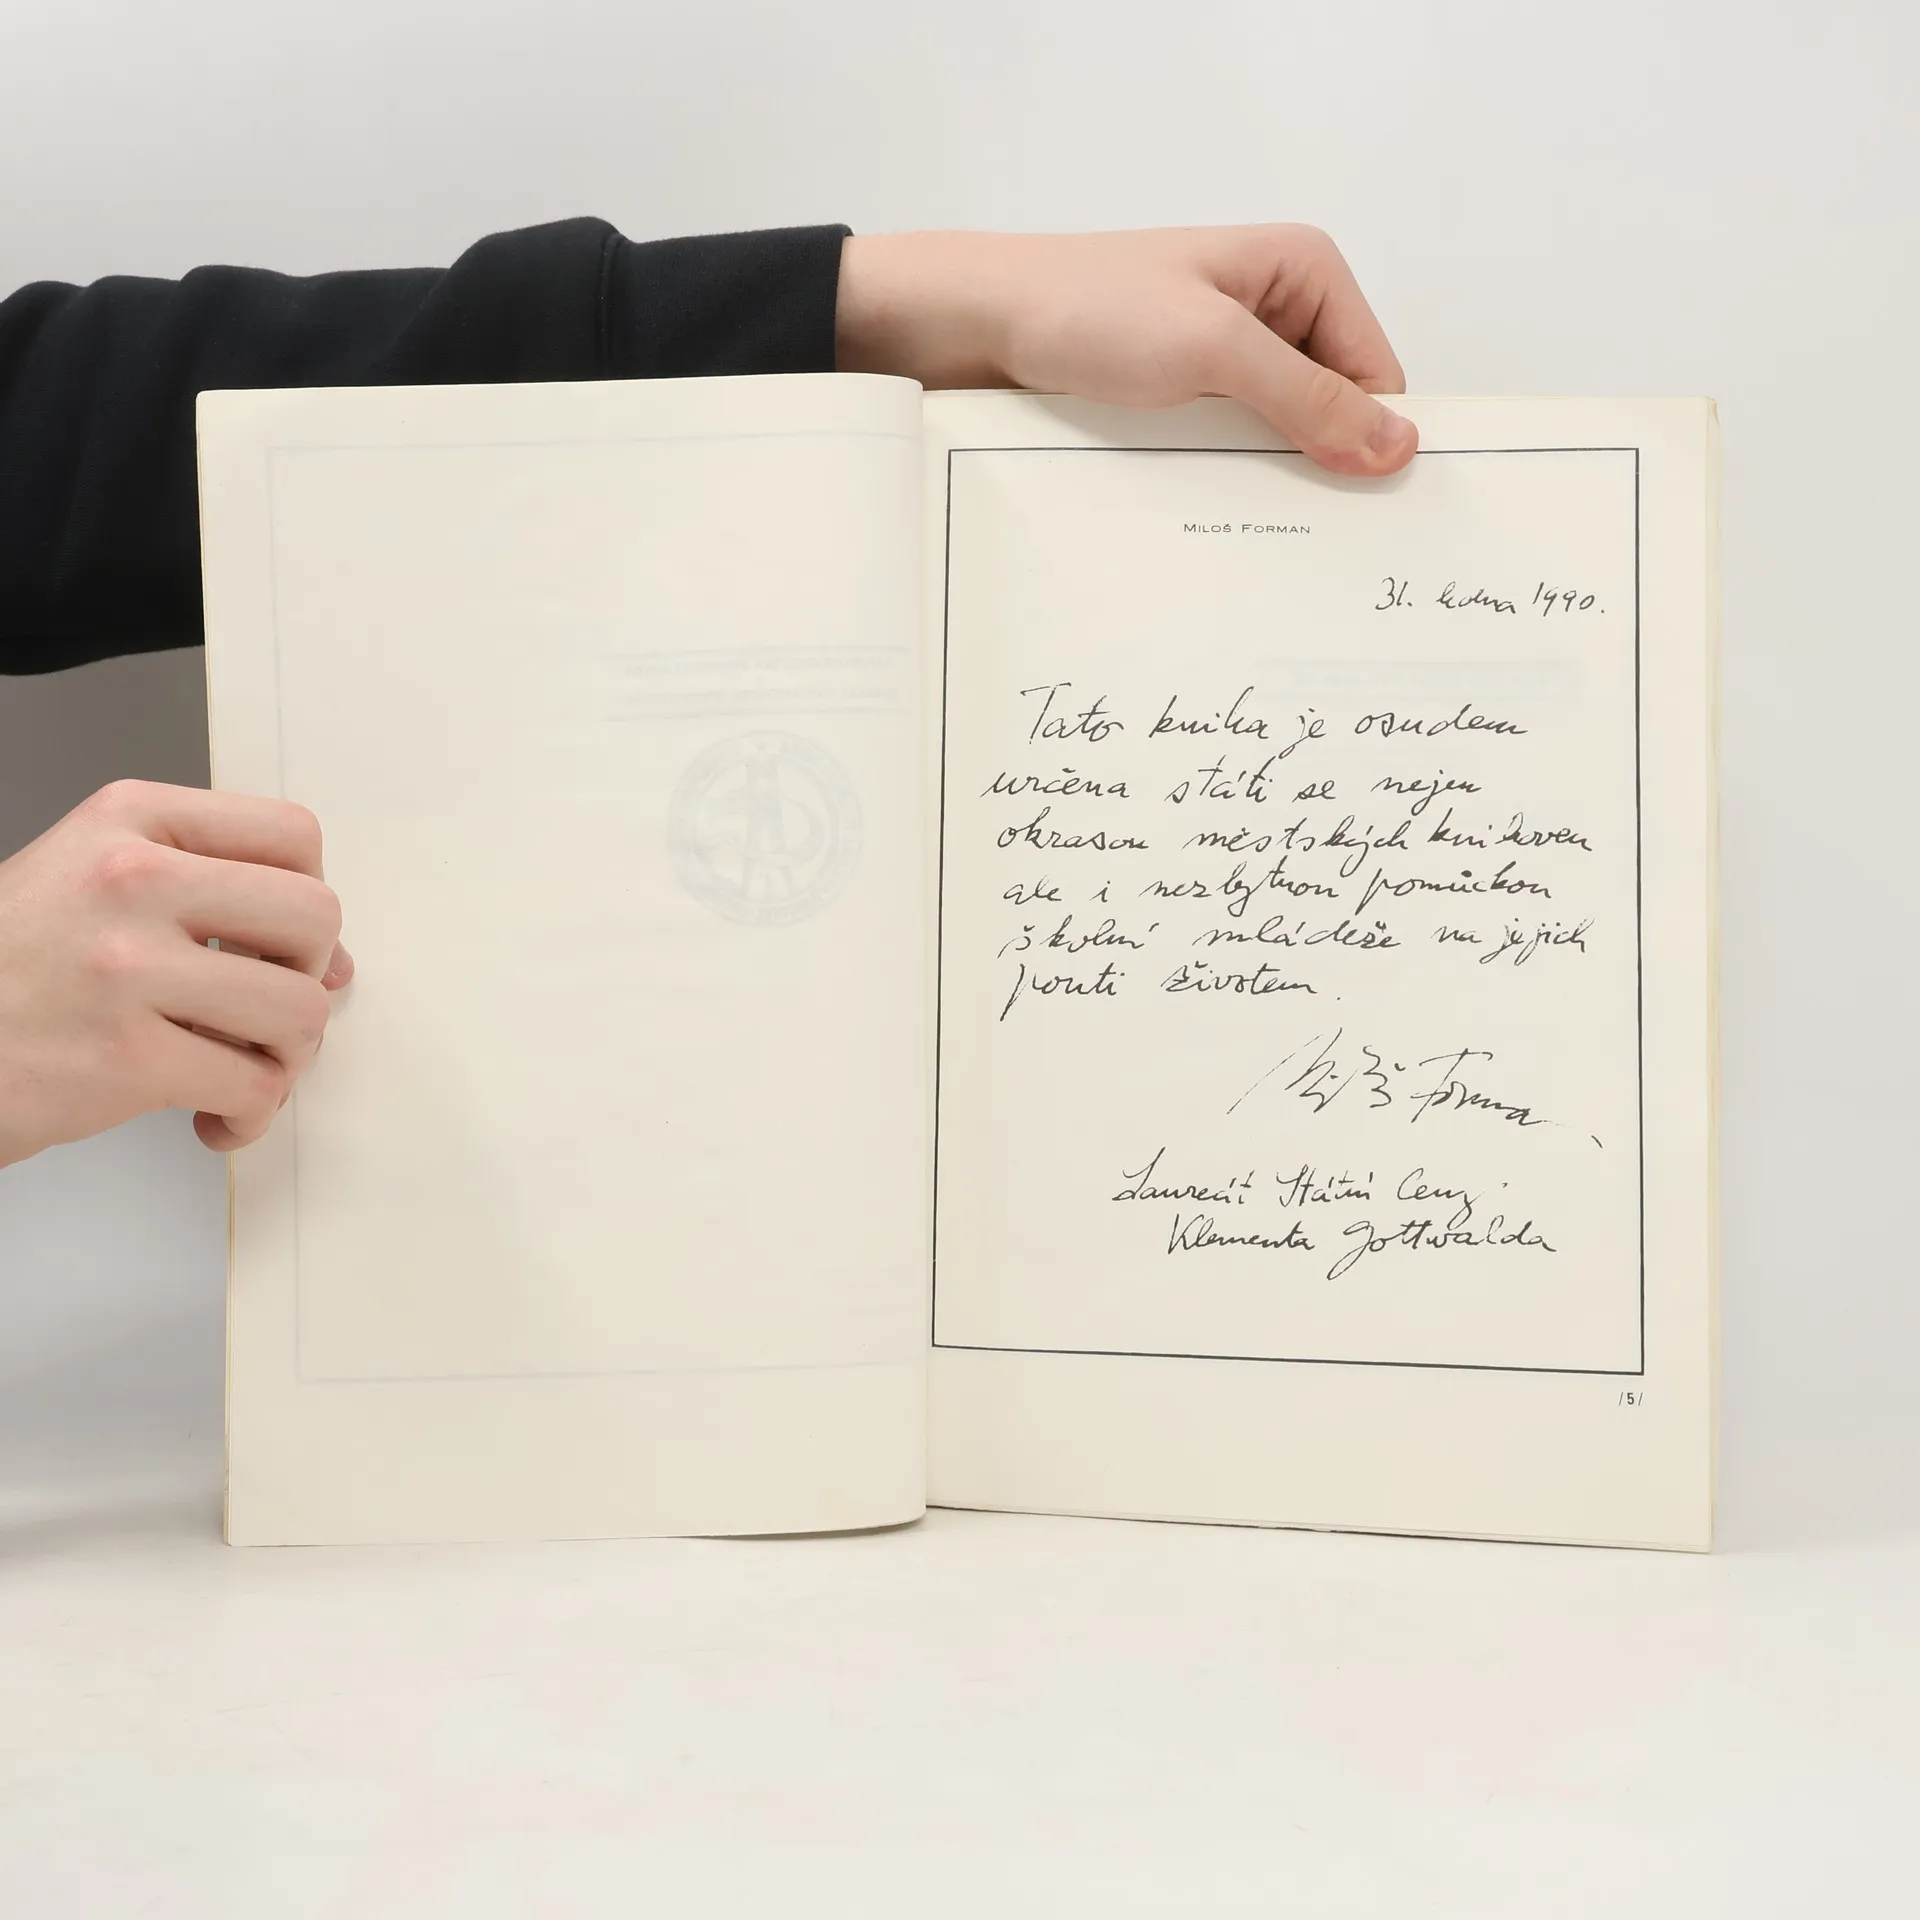 MILOŠ FORMAN
31. ledna 1990.
Tato kniha je osudem
určena státi se nejen
okrasou městských knihoven
ale i nezbytnou pomůckou
školní mládeže na jejich
pouti životem.
Miloš Forman
Laureát Státní Ceny
Klementa Gottwalda
/5/